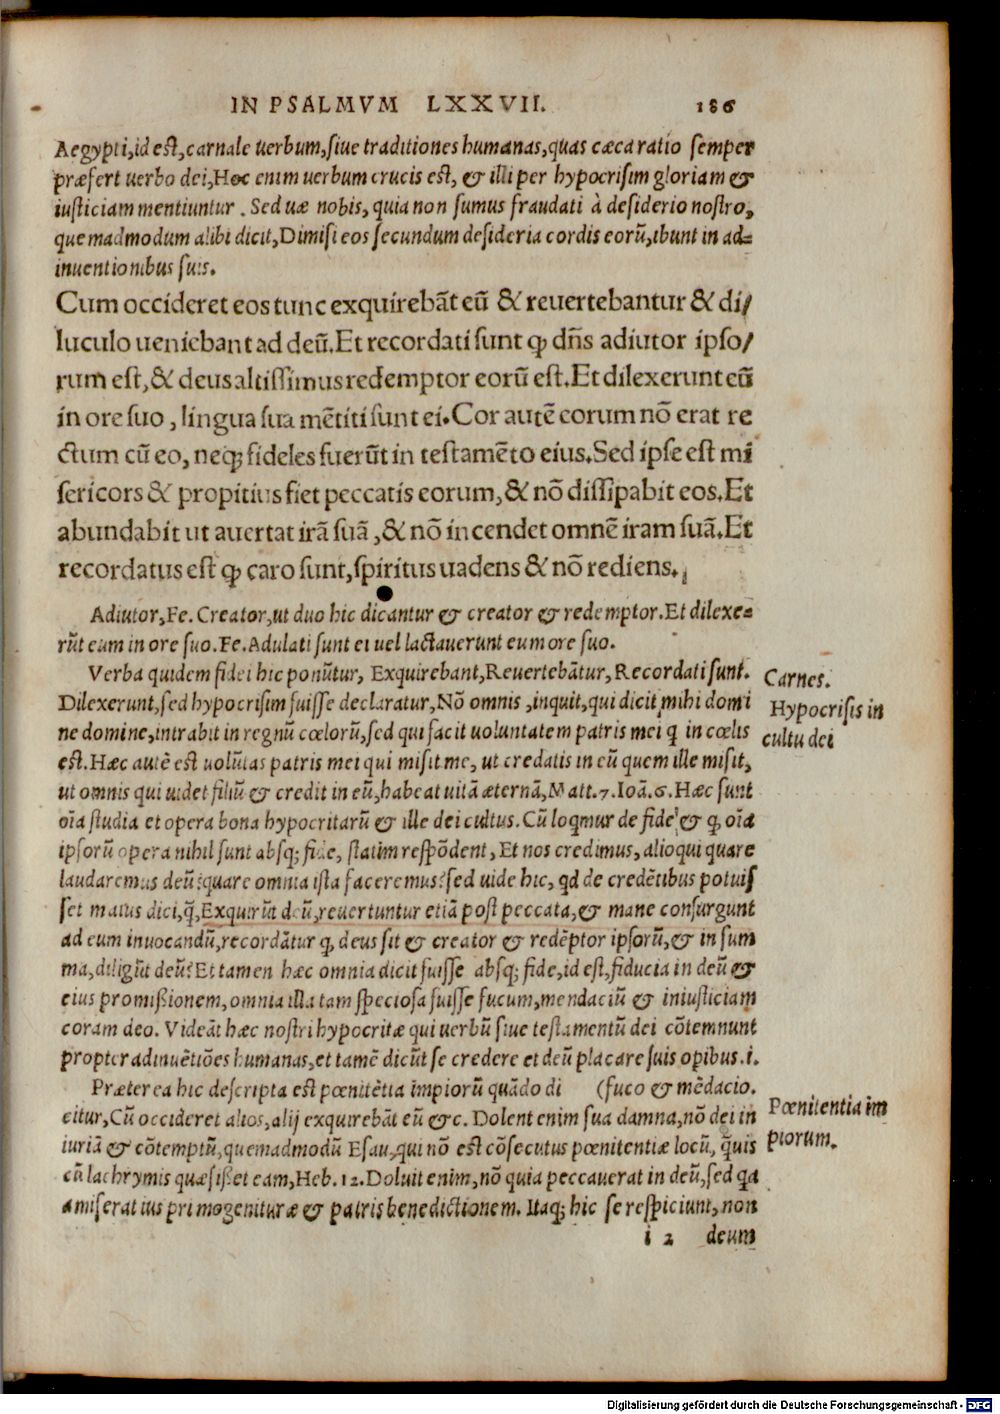 IN PSALMVM LXXVII. 186
Aegypti, id est, carnale uerbum, siue traditiones humanas, quas cæca ratio semper
præfert uerbo dei, Hoc enim uerbum crucis est, & illi per hypocrisim gloriam &
iusticiam mentiuntur. Sed uæ nobis, quia non sumus fraudati à desiderio nostro,
quemadmodum alibi dicit, Dimisi eos secundum desideria cordis eorū, ibunt in ad=
inuentionibus suis.
Cum occideret eos tunc exquirebāt eū & reuertebantur & di/
luculo ueniebant ad deū. Et recordati sunt ꝙ dn̄s adiutor ipso/
rum est, & deus altissimus redemptor eorū est. Et dilexerunt eū
in ore suo, lingua sua mētiti sunt ei. Cor autē eorum nō erat re
ctum cū eo, neqꝫ fideles fuerūt in testamēto eius. Sed ipse est mi
sericors & propitius fiet peccatis eorum, & nō dissipabit eos. Et
abundabit ut auertat irā suā, & nō incendet omnē iram suā. Et
recordatus est ꝙ caro sunt, spiritus uadens & nō rediens.
Adiutor, Fe. Creator, ut duo hic dicantur & creator & redemptor. Et dilexe=
rūt eum in ore suo. Fe. Adulati sunt ei uel lactauerunt eum ore suo.
Verba quidem fidei hic ponūtur, Exquirebant, Reuertebātur, Recordati sunt.
Carnes.
Dilexerunt, sed hypocrisim fuisse declaratur, Nō omnis, inquit, qui dicit mihi domi
Hypocrisis in
ne domine, intrabit in regnū cœlorū, sed qui facit uoluntatem patris mei q̄ in cœlis
cultu dei
est. Hæc autē est uolūtas patris mei qui misit me, ut credatis in eū quem ille misit,
ut omnis qui uidet filiū & credit in eū, habeat uitā æternā, Matt. 7. Ioā. 6. Hæc sunt
oīa studia et opera bona hypocritarū & ille dei cultus. Cū loqmur de fide & ꝙ oīa
ipsorū opera nihil sunt absqꝫ fide, statim respōdent, Et nos credimus, alioqui quare
laudaremus deū? quare omnia ista faceremus? sed uide hic, qd de credētibus potuis
set maius dici, q̄, Exquirūt deū, reuertuntur etiā post peccata, & mane consurgunt
ad eum inuocandū, recordātur ꝙ deus sit & creator & redēptor ipsorū, & in sum
ma, diligūt deū? Et tamen hæc omnia dicit fuisse absqꝫ fide, id est, fiducia in deū &
eius promißionem, omnia illa tam speciosa fuisse fucum, mendaciū & iniusticiam
coram deo. Videāt hæc nostri hypocritæ qui uerbū siue testamentū dei cōtemnunt
propter adinuētiōes humanas, et tamē dicūt se credere et deū placare suis opibus. i.
Præterea hic descripta est pœnitētia impiorū quādo di (fuco & mēdacio.
citur, Cū occideret alios, alij exquirebāt eū &c. Dolent enim sua damna, nō dei in
Pœnitentia im
iuriā & cōtemptū, quemadmodū Esau, qui nō est cōsecutus pœnitentiæ locū, q̄uis
piorum.
cū lachrymis quæsißet eam, Heb. 12. Doluit enim, nō quia peccauerat in deū, sed qa
amiserat ius primogenituræ & patris benedictionem. Itaqꝫ hic se respiciunt, non
i 2 deum
Digitalisierung gefördert durch die Deutsche Forschungsgemeinschaft - DFG